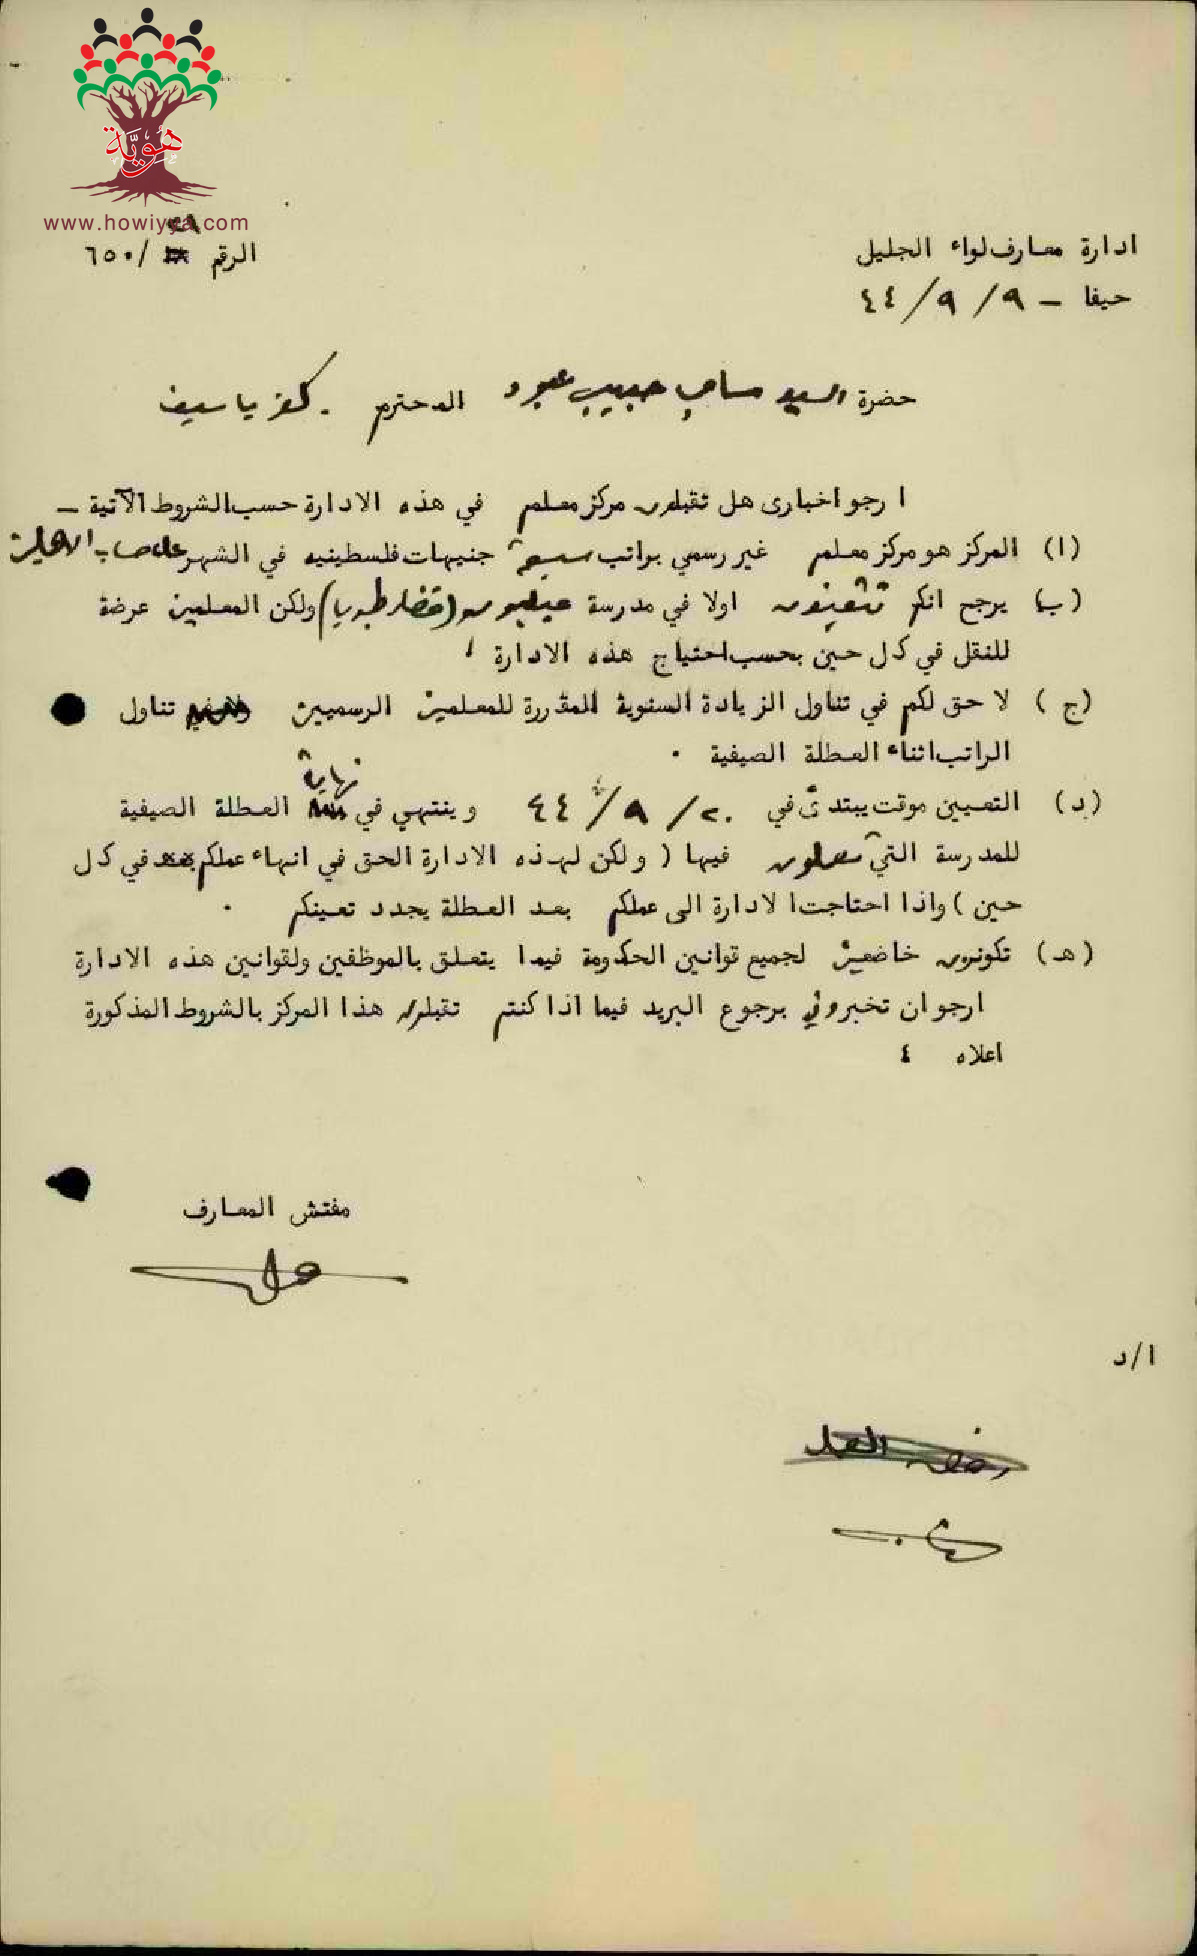 هُوِيَّة
www.howiyya.com
ادارة معارف لواء الجليل
الرقم ٦٥٠/
حيفا - ٩/ ٩/ ٤٤
حضرة السيد حبيب عبود المحترم . كفر ياسيف
ارجو اخباري هل تقبلون مركز معلم في هذه الادارة حسب الشروط الآتية -
(ا) المركز هو مركز معلم غير رسمي براتب سبعة جنيهات فلسطينيه في الشهر على حساب الاهلين
(ب) يرجح انكم تتعينون اولا في مدرسة عيلبون (قضاء طبريا) ولكن المعلمين عرضة
للنقل في كل حين بحسب احتياج هذه الادارة
(ج) لا حق لكم في تناول الزيادة السنوية المقررة للمعلمين الرسميين تناول
الراتب اثناء العطلة الصيفية .
(د) التعيين موقت يبتدئ في ٢٠/ ٩/ ٤٤ وينتهي في نهاية العطلة الصيفية
للمدرسة التي تعملون فيها ( ولكن لهذه الادارة الحق في انهاء عملكم في كل
حين ) واذا احتاجت الادارة الى عملكم بعد العطلة يجدد تعينكم .
(هـ) تكونون خاضعين لجميع قوانين الحكومة فيما يتعلق بالموظفين ولقوانين هذه الادارة
ارجو ان تخبروني برجوع البريد فيما اذا كنتم تقبلون هذا المركز بالشروط المذكورة
اعلاه ٤
مفتش المعارف
ا/د